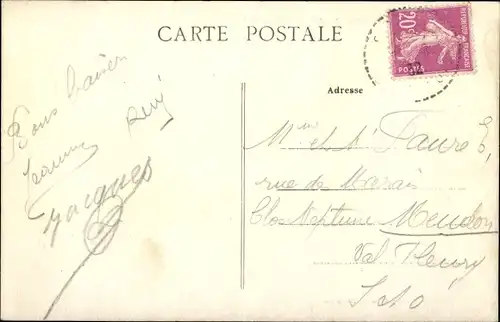 CARTE POSTALE
20c
REPUBLIQUE FRANCAISE
POSTES
Adresse
Bons baisers
Jeanne René
Jacques
Mme et Mr Faure E,
rue de Marais
Clos Neptune Meudon
Val Fleury
S et O